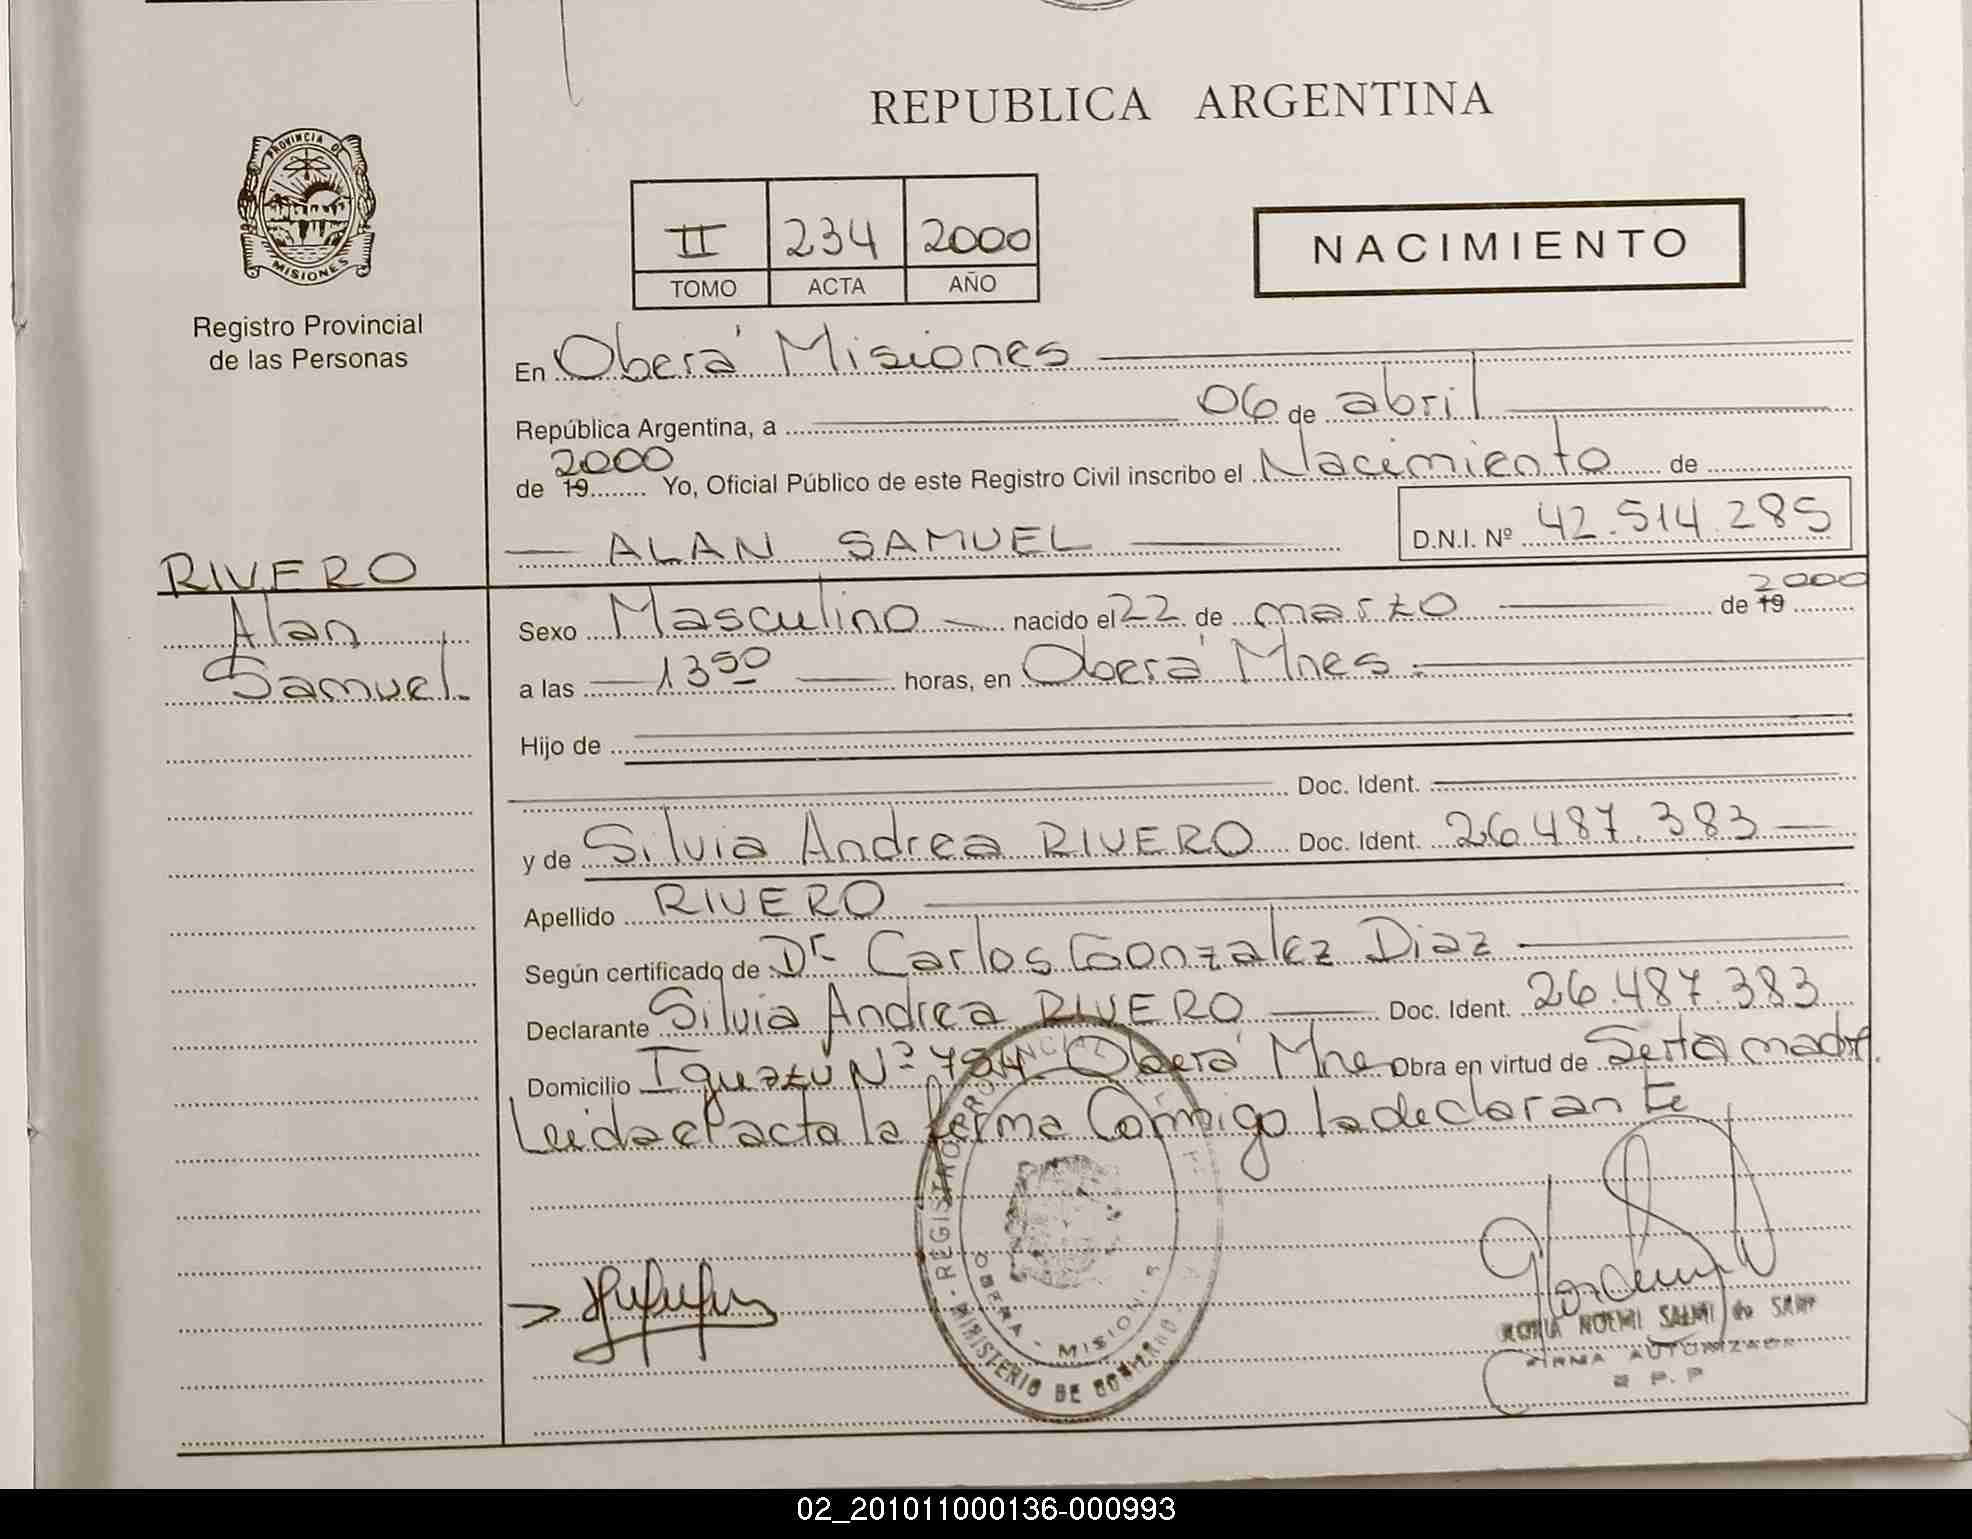 REPUBLICA ARGENTINA
PROVINCIA DE
MISIONES
Registro Provincial
de las Personas
II 234 2000
TOMO ACTA AÑO
NACIMIENTO
En Oberá Misiones
República Argentina, a 06 de abril
de 19 2000 Yo, Oficial Público de este Registro Civil inscribo el Nacimiento de
ALAN SAMUEL D.N.I. Nº 42.514.285
RIVERO
Alan
Samuel
Sexo Masculino nacido el 22 de marzo de 19 2000
a las 13 50 horas, en Oberá Mnes.
Hijo de
Doc. Ident.
y de Silvia Andrea RIVERO Doc. Ident. 26.487.383
Apellido RIVERO
Según certificado de Dr Carlos Gonzalez Diaz
Declarante Silvia Andrea RIVERO Doc. Ident. 26.487.383
Domicilio Iguazú Nº Oberá Mne Obra en virtud de Ser la madre.
Leida el acta la firma Conmigo la declarante
REGISTRO PROVINCIAL
OBERA - MISIONES
MINISTERIO DE GOBIERNO
NOEMI SALMI de
FIRMA AUTORIZADA
R P. P
02_201011000136-000993